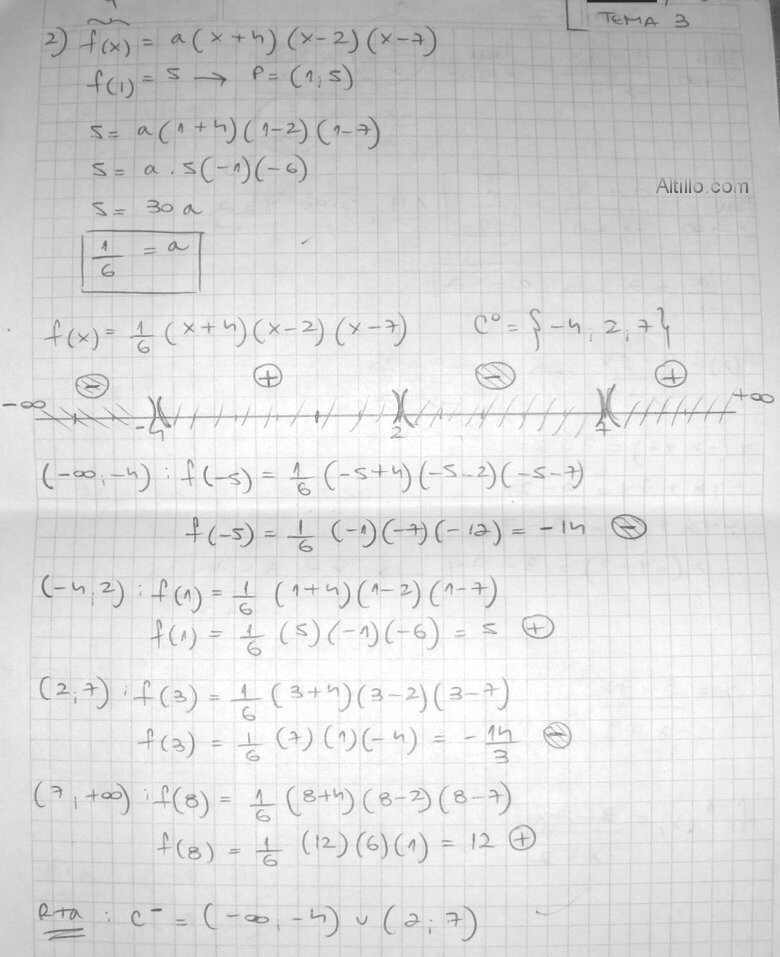 TEMA 3
2) f(x) = a(x+4)(x-2)(x-7)
f(1) = 5 → P = (1,5)
5 = a(1+4)(1-2)(1-7)
5 = a . 5(-1)(-6)
Altillo.com
5 = 30 a
1/6 = a
f(x) = 1/6 (x+4)(x-2)(x-7) C° = {-4; 2; 7}
⊖ ⊕ ⊖ ⊕
-∞ -4 2 7 +∞
(-∞,-4) : f(-5) = 1/6 (-5+4)(-5-2)(-5-7)
f(-5) = 1/6 (-1)(-7)(-12) = -14 ⊖
(-4,2) : f(1) = 1/6 (1+4)(1-2)(1-7)
f(1) = 1/6 (5)(-1)(-6) = 5 ⊕
(2;7) : f(3) = 1/6 (3+4)(3-2)(3-7)
f(3) = 1/6 (7)(1)(-4) = -14/3 ⊖
(7,+∞) : f(8) = 1/6 (8+4)(8-2)(8-7)
f(8) = 1/6 (12)(6)(1) = 12 ⊕
Rta : C⁻ = (-∞,-4) ∪ (2;7)